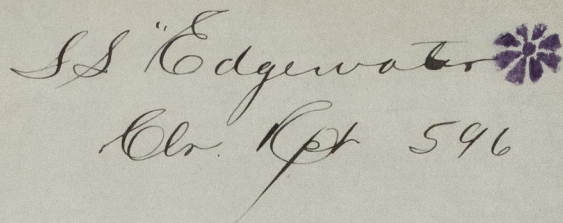 SS "Edgewater
Clr. Rpt 596